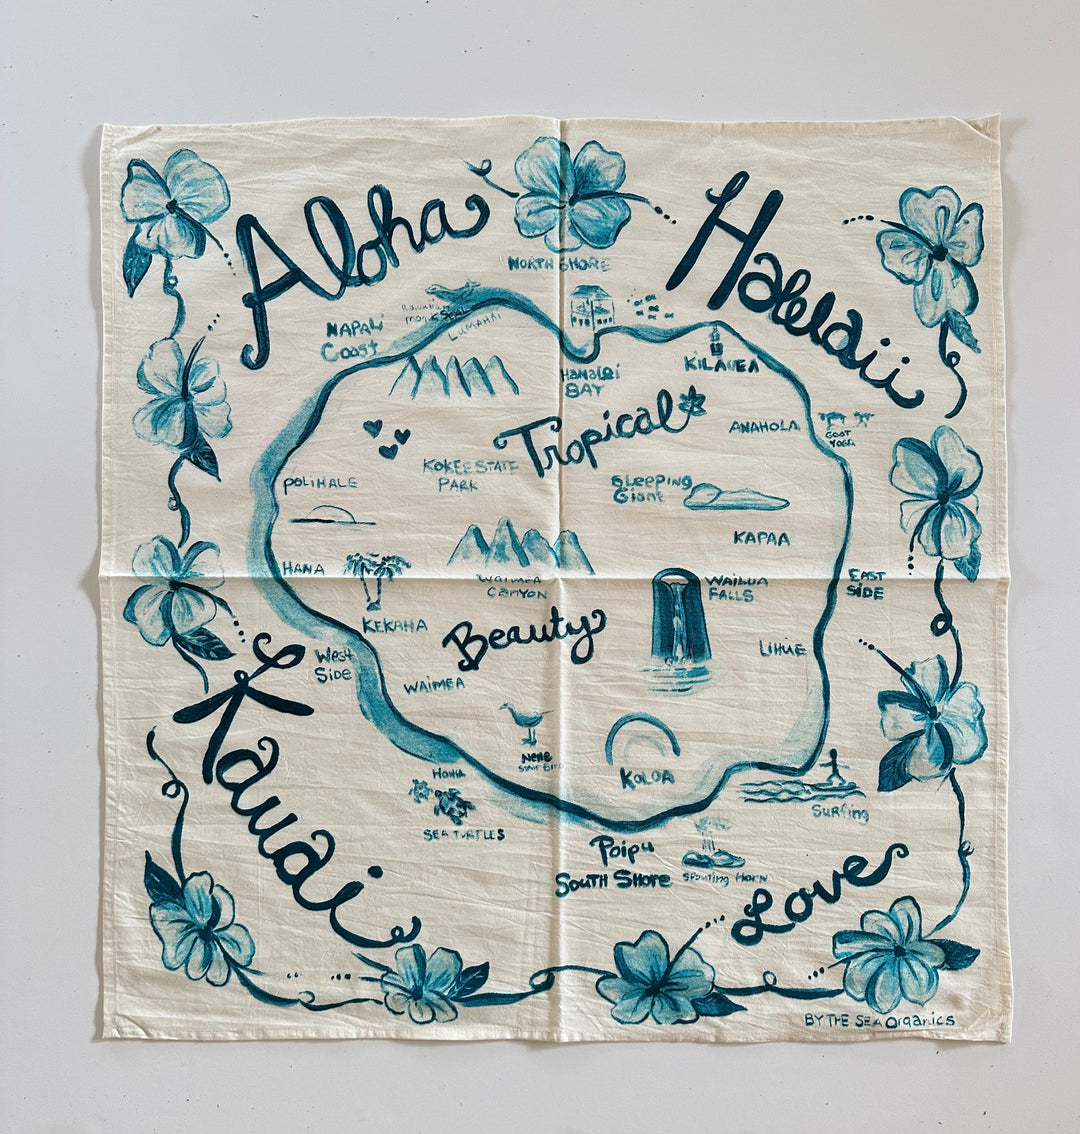 Aloha
Hawaii
NORTH SHORE
NAPALI
Coast
LUMAHAI
HANALEI
BAY
KILAUEA
Tropical
ANAHOLA
GOAT
YOGA
KOKEE STATE
PARK
POLIHALE
SLEEPING
Giant
KAPAA
HANA
WAIMEA
CANYON
WAILUA
FALLS
EAST
SIDE
KEKAHA
Beauty
LIHUE
West
SIDE
WAIMEA
Kauai
Nene
KOLOA
HONU
SEA TURTLES
Surfing
Poipu
SOUTH SHORE
Spouting Horn
Love
BY THE SEA Organics